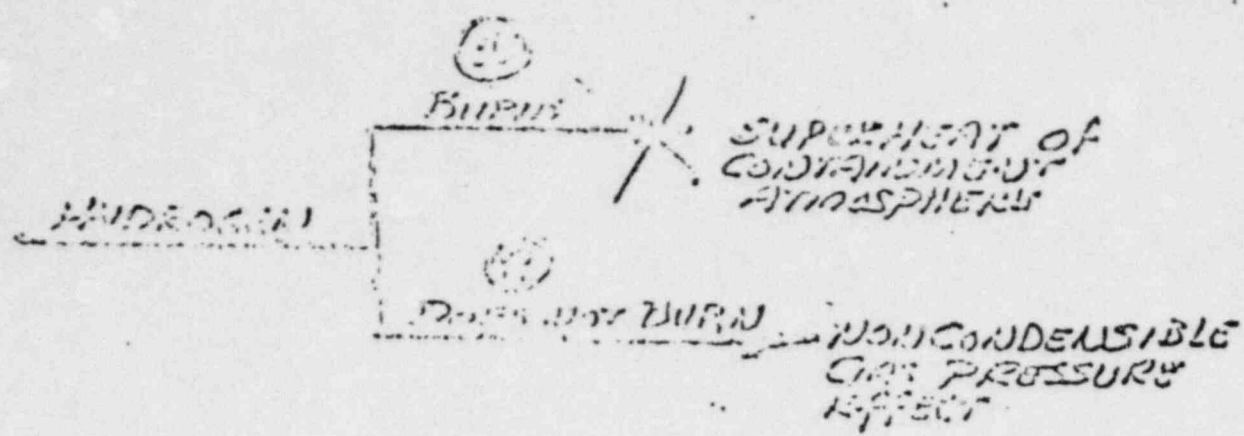 BURNS
SUPERHEAT OF
CONTAINMENT
ATMOSPHERE
HYDROGEN
DOES NOT BURN
NONCONDENSIBLE
GAS PRESSURE
EFFECT